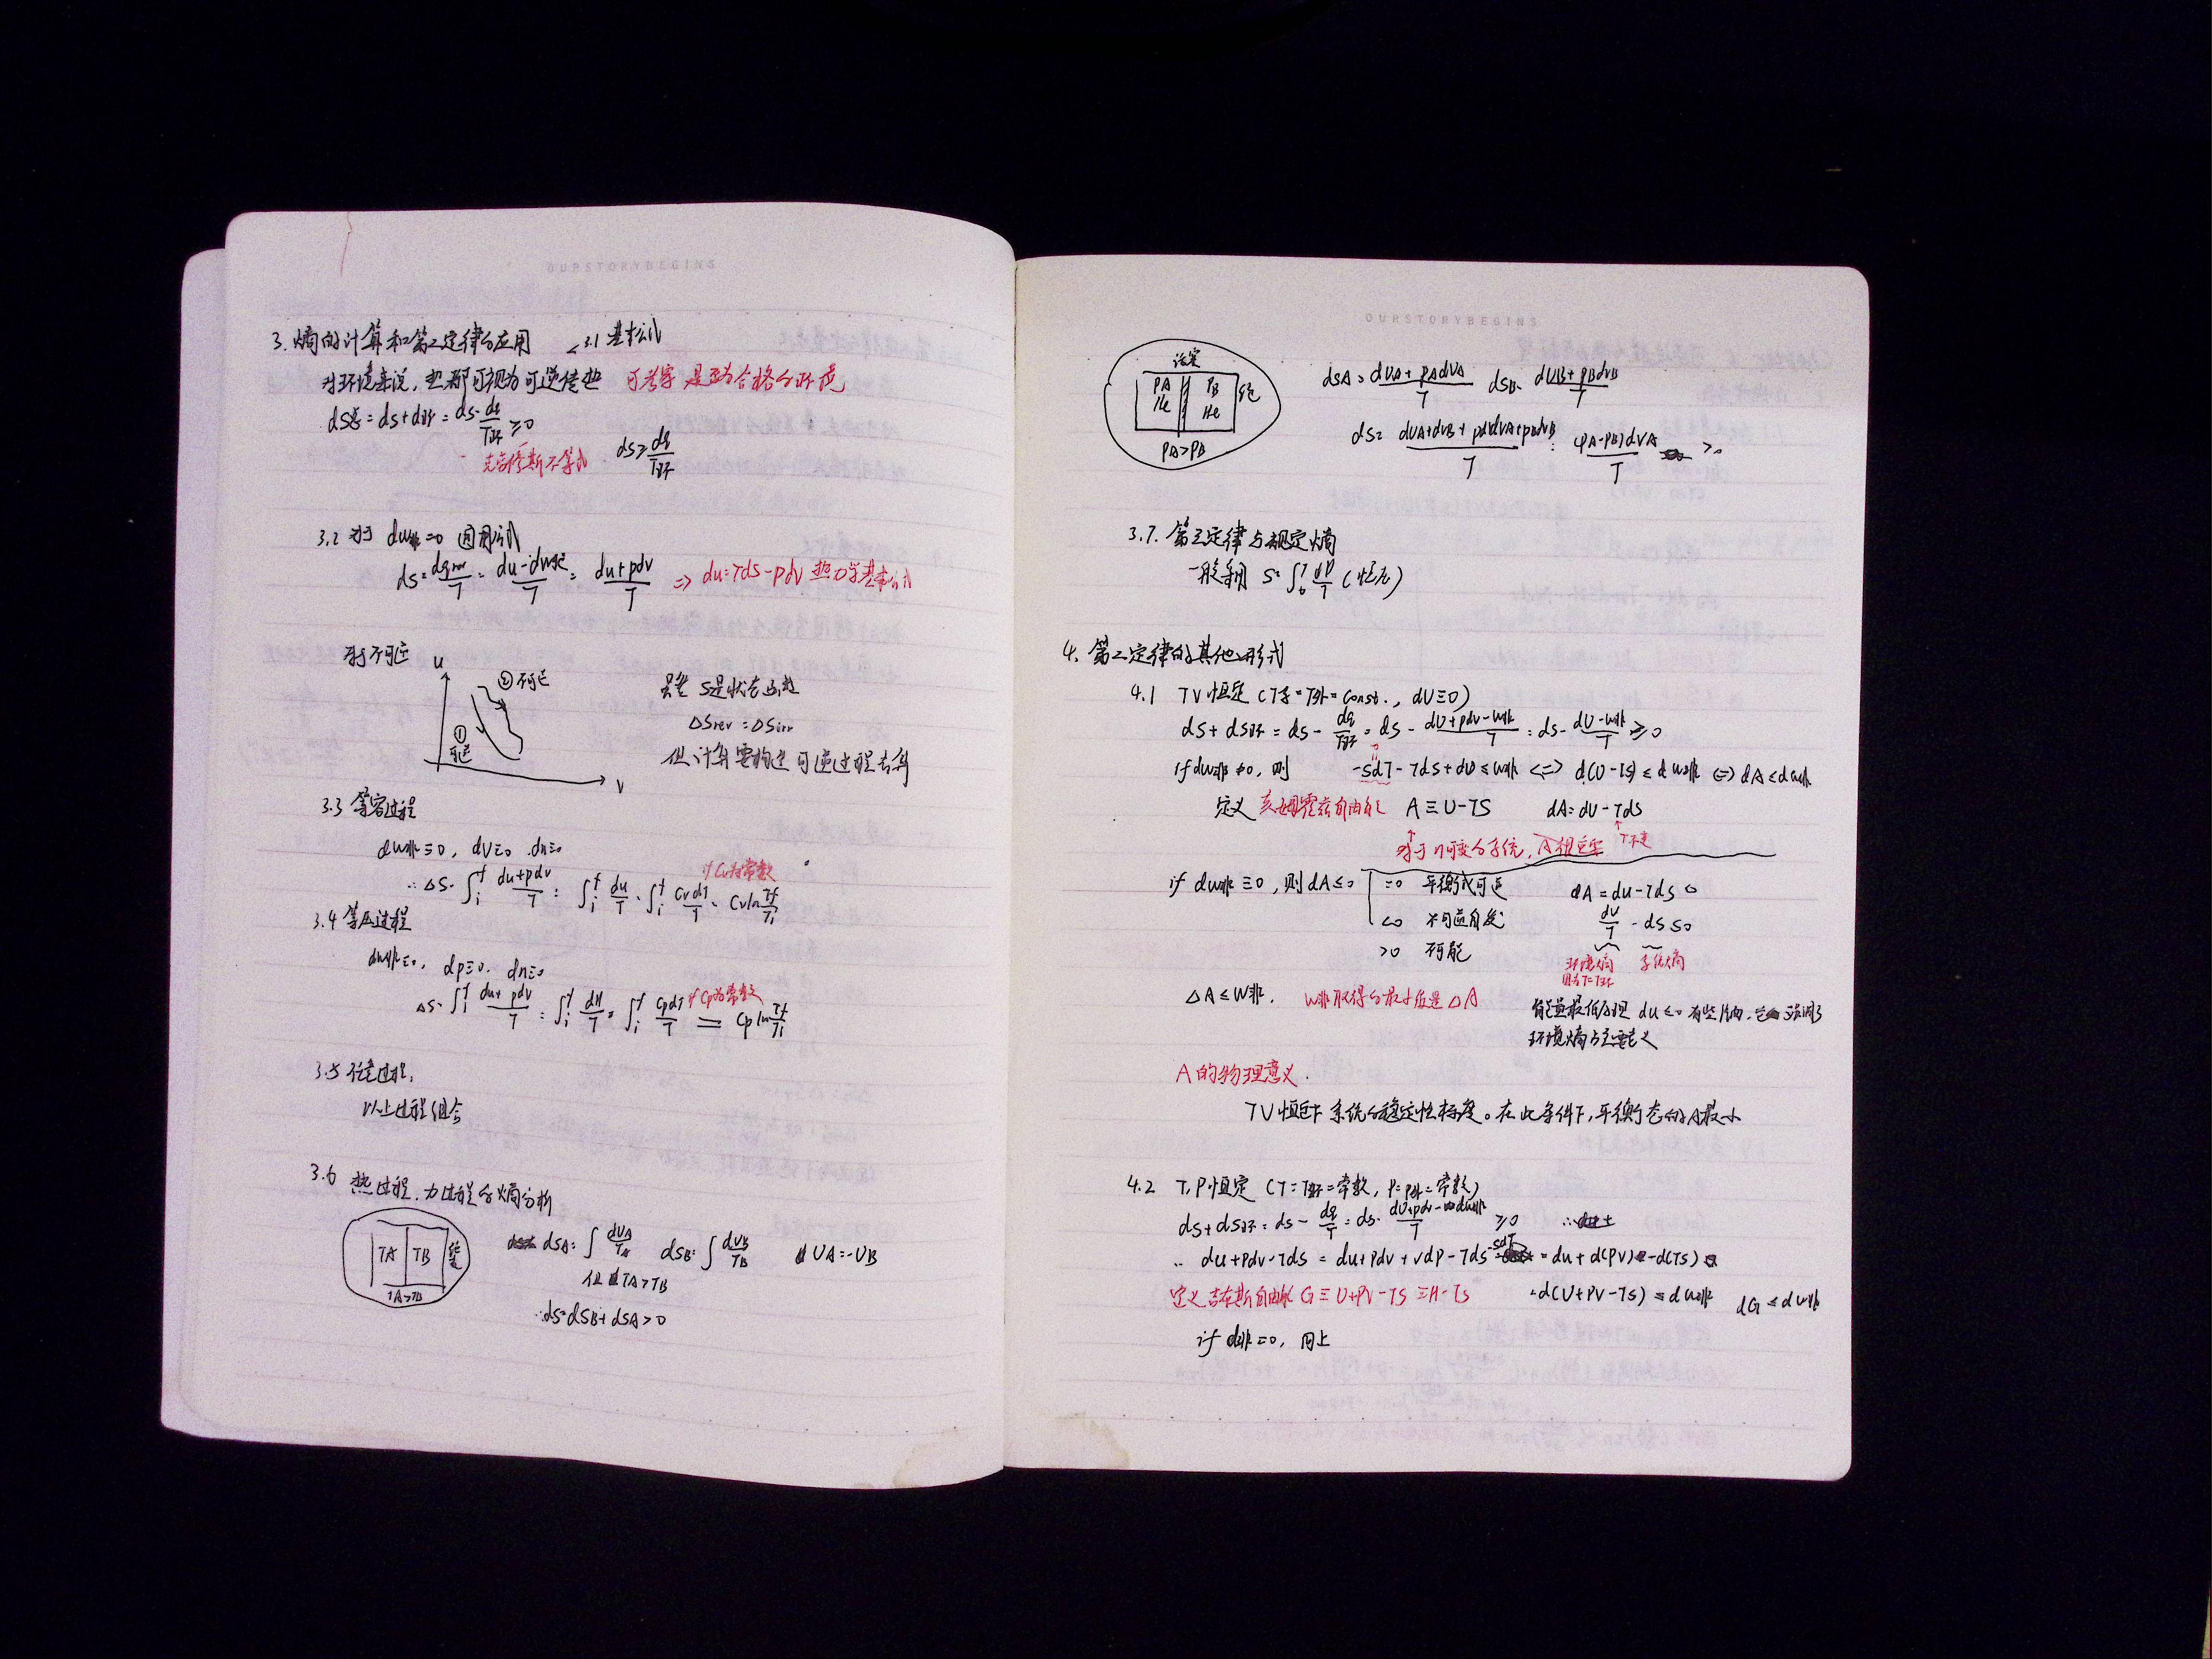 OURSTORYBEGINS
3. 熵的计算和第二定律的应用 <3.1 基本公式
对环境来说,热都可视为可逆传热 可考察是否为合格的环境
dS总=dS+dS环=dS-dq/T环≥0
克劳修斯不等式 dS≥dq/T环
3.2 对于 dw非=0
dS=dqrev/T=du-dw/T=du+pdv/T => du=TdS-pdv 热力学基本公式
对于不可逆
u
②不可逆
①
可逆
v
虽然 S是状态函数
ΔSrev=ΔSirr
但计算要构建可逆过程去算
3.3 等容过程
dw非≡0, dV≡0. dn≡0
if Cv为常数
∴ΔS=∫i^f du+pdv/T=∫i^f du/T=∫i^f CvdT/T=Cvln Tf/Ti
3.4 等压过程
dw非≡0, dp≡0. dn≡0
if Cp为常数
ΔS=∫i^f du+pdv/T=∫i^f dH/T=∫i^f CpdT/T=Cpln Tf/Ti
3.5 任意过程.
以上过程组合
3.6 热过程.力过程的熵分析
TA TB
TA>TB
dSA=∫dUA/TA dSB=∫dUB/TB dUA=-UB
但TA>TB
∴dS=dSB+dSA>0
OURSTORYBEGINS
PA PB
He He
PA>PB
dSA=dUA+PAdVA/T dSB=dUB+PBdVB/T
dS=dUA+dUB+PAdVA+PBdVB/T=(PA-PB)dVA/T >0
3.7. 第三定律与规定熵
一般采用 S=∫0^T (恒压)
4. 第二定律的其他形式
4.1 TV恒定 (T系=T外=const., dV≡0)
dS+dS环=dS-dq/T环=dS-dU+pdv-w非/T=dS-dU-w非/T≥0
if dw非≠0,则 -SdT-TdS+dU≤w非 <=> d(U-TS)≤dw非 <=> dA≤dw非
定义 亥姆霍兹自由能 A≡U-TS dA=dU-TdS
对于n可变的系统, T不变
if dw非≡0,则dA≤0 =0 平衡或可逆 dA=du-TdS≤0
<0 不可逆自发 dU/T-dS≤0
>0 不可能
环境熵 系统熵
因为T=T环
ΔA≤W非. W非取得的最小值是ΔA
能量最低原理 du≤0 有些片面.它强调了
环境熵占主要意义
A的物理意义.
TV恒定下系统的稳定性标度。在此条件下,平衡态的A最小
4.2 T,P恒定 (T=T环=常数, P=P外=常数)
dS+dS环=dS-dq/T=dS-dU+pdv-dw非/T≥0
∴ du+pdv-TdS=du+pdv+vdp-TdS-SdT=du+d(PV)-d(TS)
定义吉布斯自由能 G≡U+PV-TS≡H-TS =d(U+PV-TS)≤dw非 dG≤dw非
if d非≡0, 同上